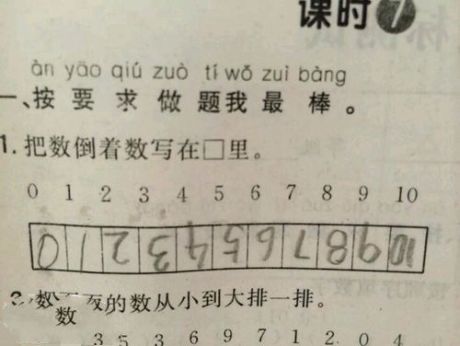 课时7
àn yāo qiú zuò tí wǒ zuì bàng
一、按要求做题我最棒。
1.把数倒着数写在□里。
0 1 2 3 4 5 6 7 8 9 10
0 1 2 3 4 5 6 7 8 9 10
的数从小到大排一排。
数
5 6 9 7 1 2 0 4